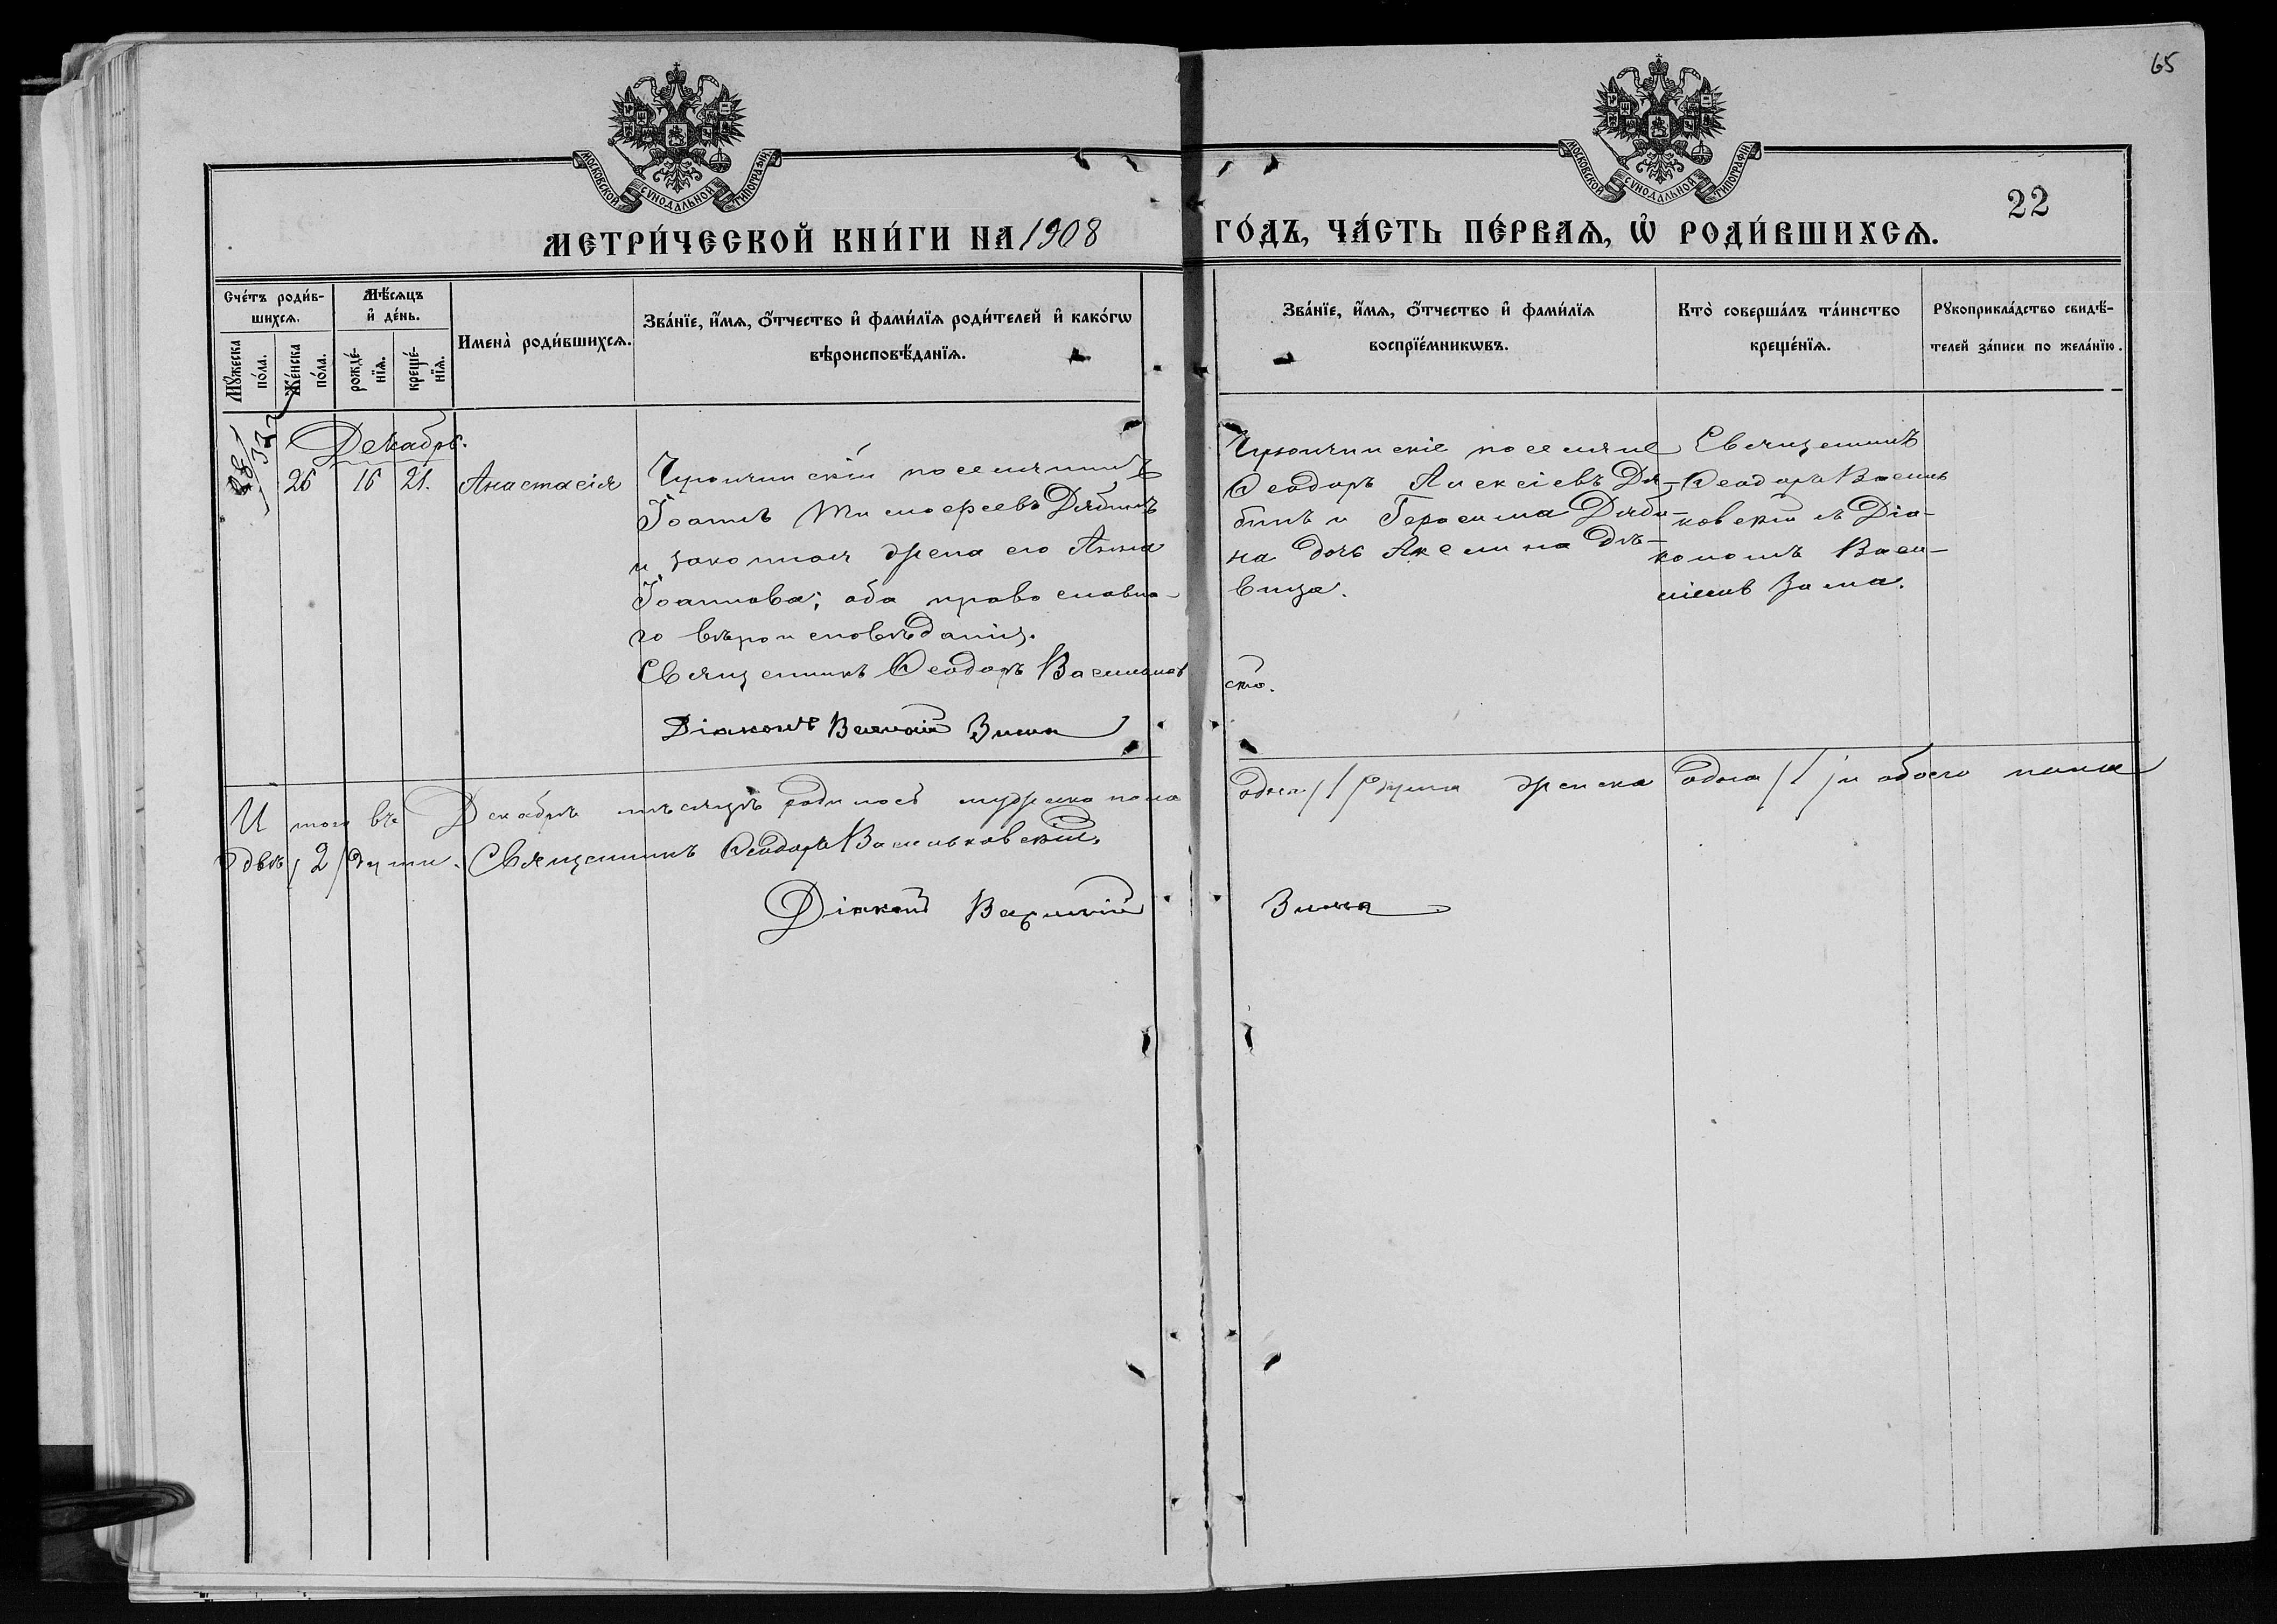 65
МОСКОВСКОЙ СѴНОДАЛЬНОЙ ТИПОГРАФІИ
МОСКОВСКОЙ СѴНОДАЛЬНОЙ ТИПОГРАФІИ
22
МЕТРИ́ЧЕСКОЙ КНИ́ГИ НА 1908
ГО́ДЪ, ЧА́СТЬ ПЕ́РВАѦ, Ѡ҆ РОДИ́ВШИХСѦ.
Сче́тъ роди́в-
шихсѧ.
Мꙋ́жеска по́ла.
Же́нска по́ла.
Мѣ́сѧцъ
и҆ де́нь.
рожде́-нїѧ.
креще́-нїѧ.
Имена̀ роди́вшихсѧ.
Зва́нїе, и҆́мѧ, ѻ҆́тчество и҆ фами́лїѧ роди́телей и҆ како́гѡ
вѣроисповѣ́данїѧ.
Зва́нїе, и҆́мѧ, ѻ҆́тчество и҆ фами́лїѧ
воспрїе́мникѡвъ.
Кто̀ соверша́лъ та́инство
креще́нїѧ.
Рꙋкоприкла́дство свидѣ́-
телей за́писи по жела́нїю.
Декабрь.
26 16 21. Анастасія
поселянинъ
Іоаннъ Тимоѳеевъ Дябинъ
и законная жена его Анна
Іоаннова; оба православна-
го вѣроисповѣданія.
Священникъ Ѳеодоръ Васильков
скій.
Діаконъ Василій Зима
поселяне
Ѳеодоръ Алексіевъ Дя-
бинъ и Герасима Дяби-
на дочь Акелина дѣ-
вица.
Священникъ
Ѳеодоръ Василь
ковскій съ Діа-
кономъ Васи-
ліемъ Зима.
И того въ Декабрѣ мѣсяцѣ родилось мужеска пола
одна /1/ душа женска одна /1/ и обоего пола
двѣ /2/ души. Священникъ Ѳеодоръ Васильковскій.
Діаконъ Василій Зима